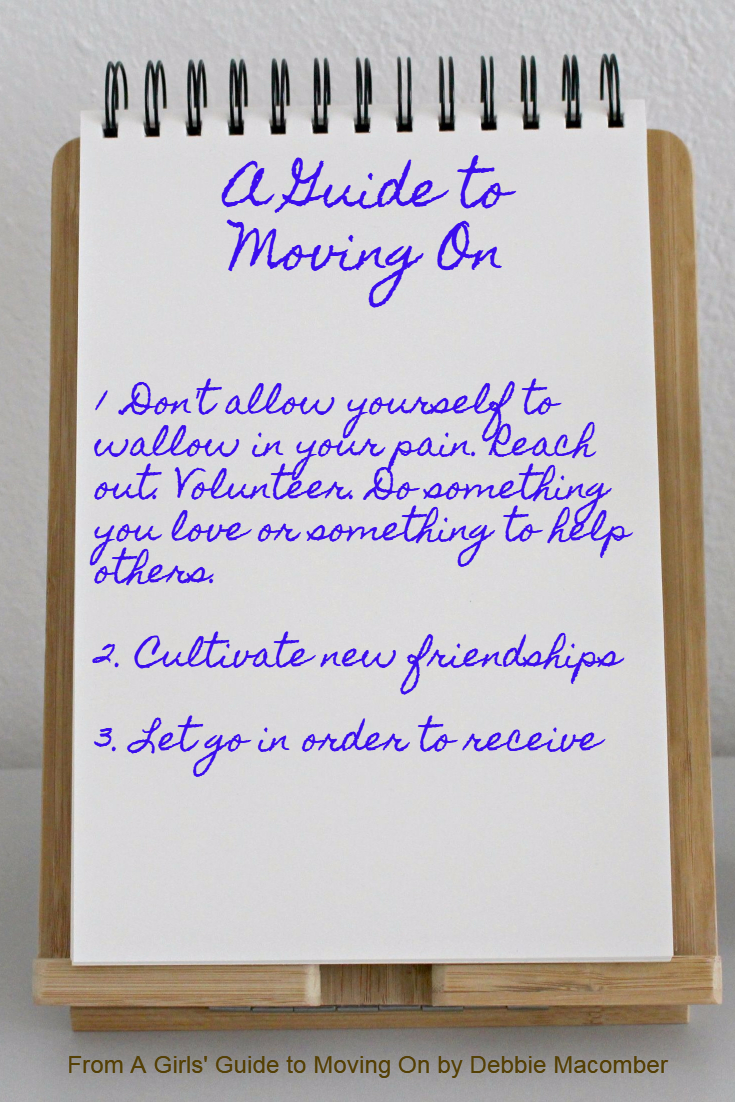 A Guide to
Moving On
1. Don't allow yourself to
wallow in your pain. Reach
out. Volunteer. Do something
you love or something to help
others.
2. Cultivate new friendships
3. Let go in order to receive
From A Girls' Guide to Moving On by Debbie Macomber